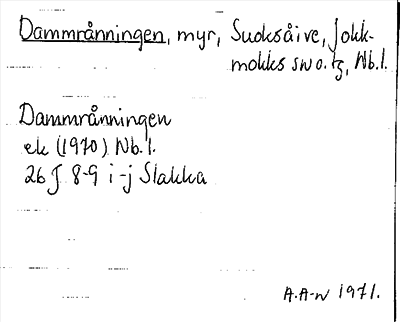 Dammrånningen, myr, Suoksåive, Jokk-
mokks sn o. tg, Nb. l.
Dammrånningen
ek (1970) Nb. l.
26 J 8-9 i-j Slakka
A.A-n 1971.